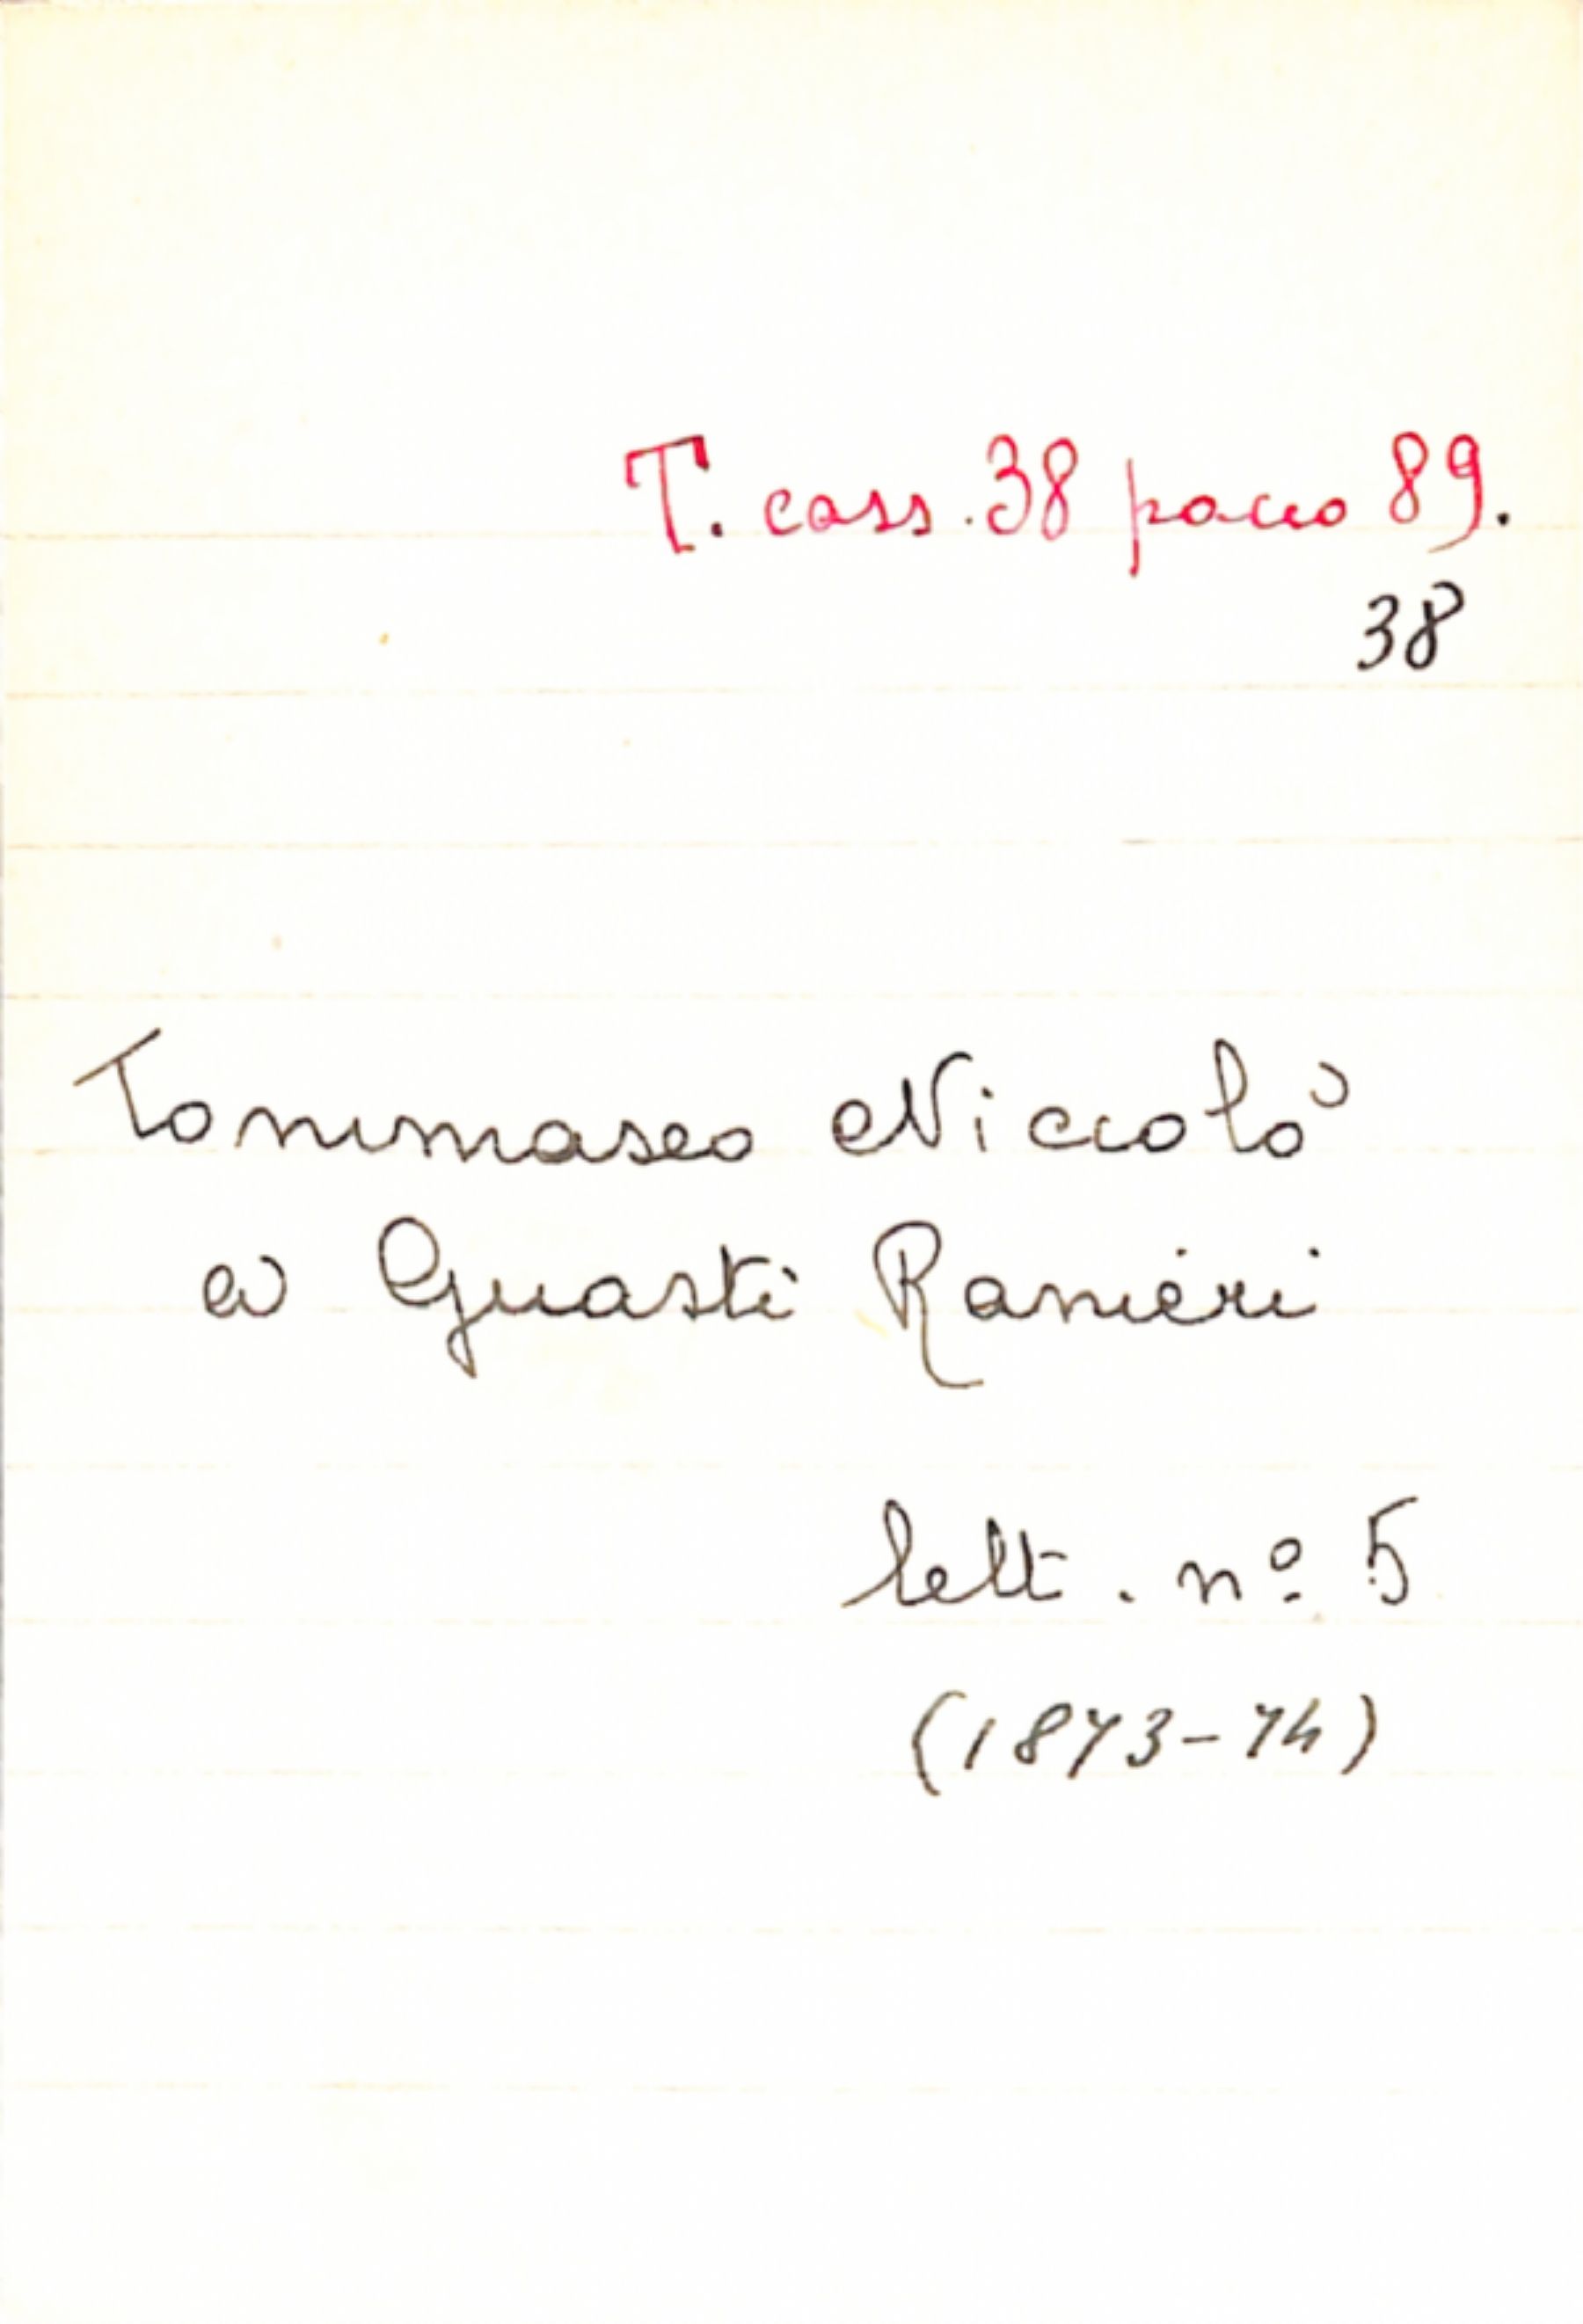 T. cass. 38 pacco 89.
38
Tommaseo Niccolò
a Guasti Ranieri
lett. nº 5
(1873-74)